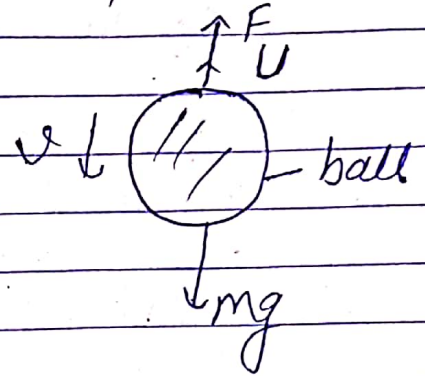 F
U
v
ball
mg